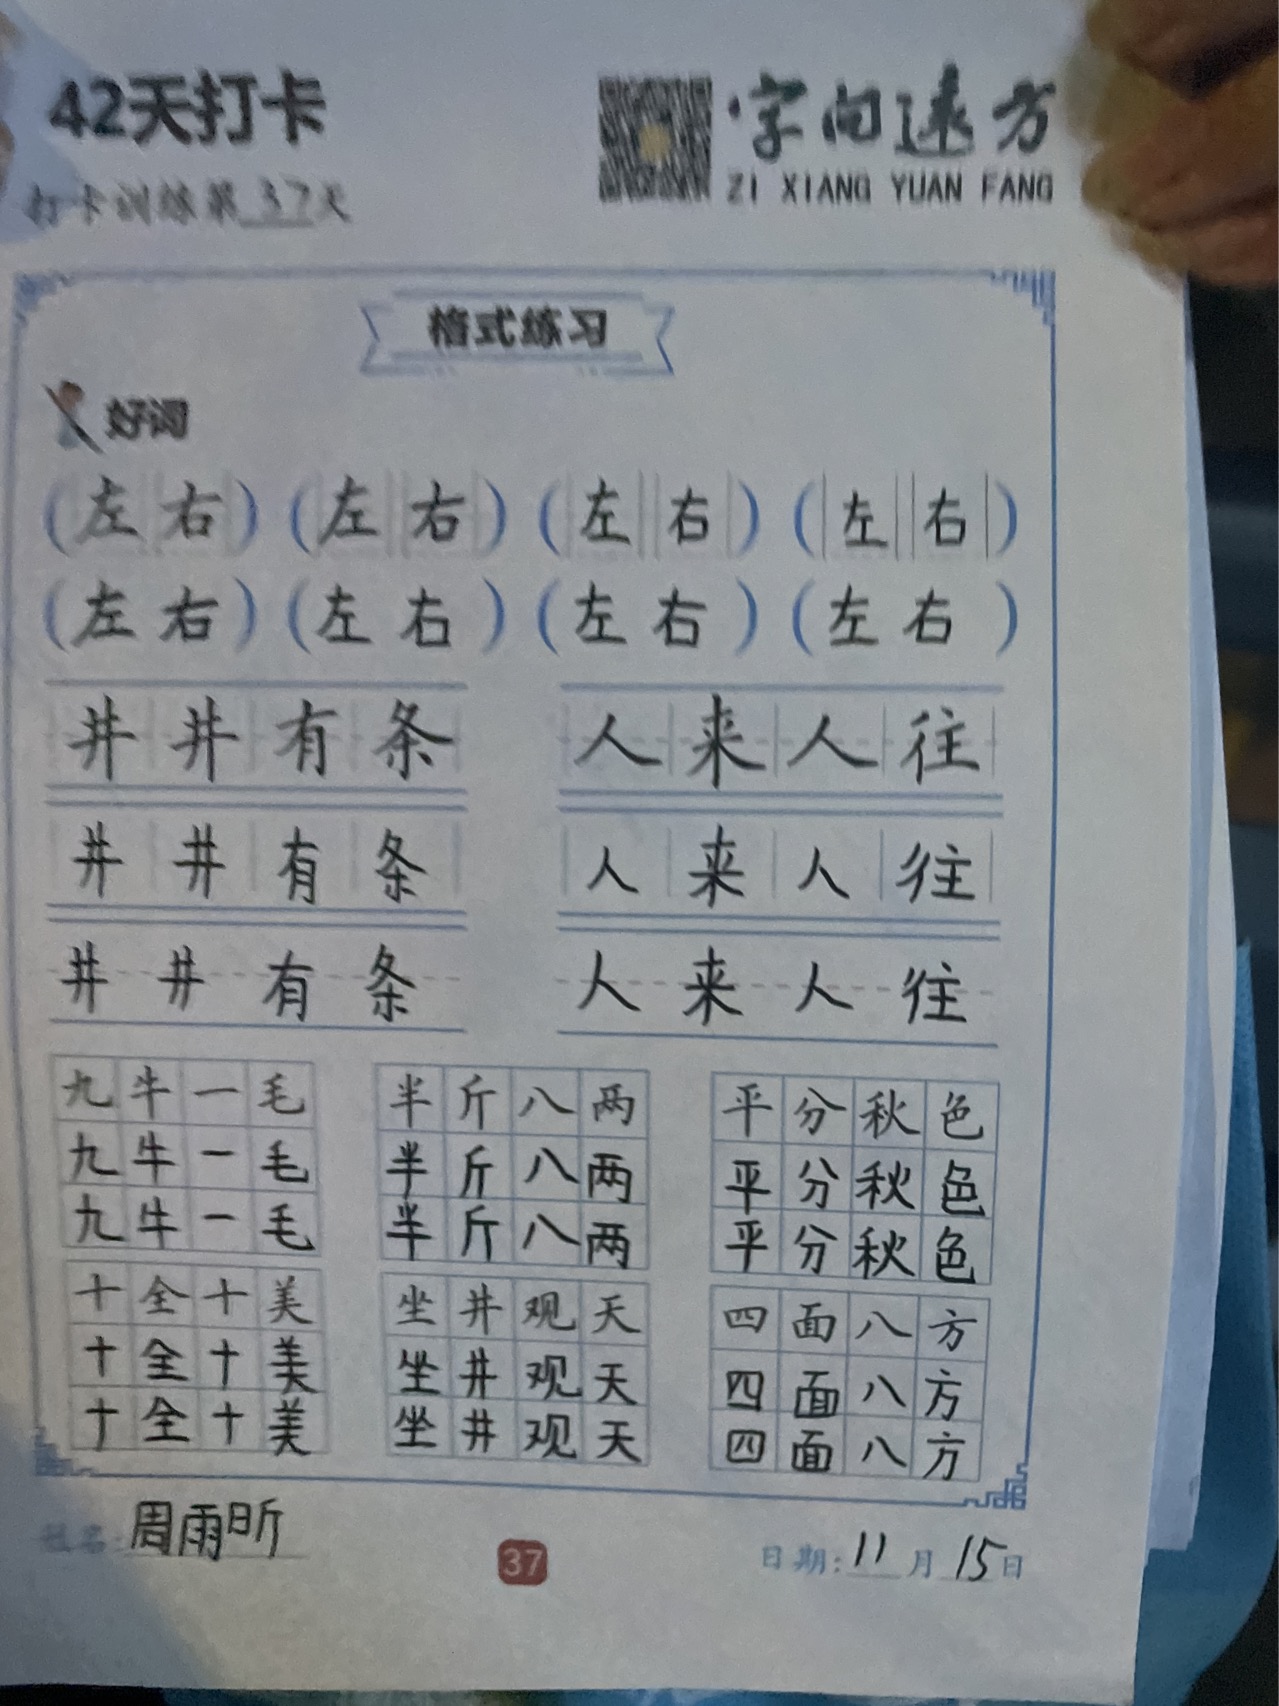 42天打卡
字向远方
ZI XIANG YUAN FANG
打卡训练第37天
格式练习
好词
(左右)(左右)(左右)(左右)
(左右)(左右)(左右)(左右)
井井有条 人来人往
井井有条 人来人往
井井有条 人来人往
九牛一毛 半斤八两 平分秋色
九牛一毛 半斤八两 平分秋色
九牛一毛 半斤八两 平分秋色
十全十美 坐井观天 四面八方
十全十美 坐井观天 四面八方
十全十美 坐井观天 四面八方
姓名:周雨昕 37 日期:11月15日